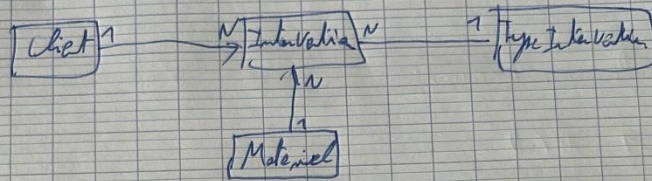 Client 1 N Intervention N 1 Type Intervention
N
1
Materiel